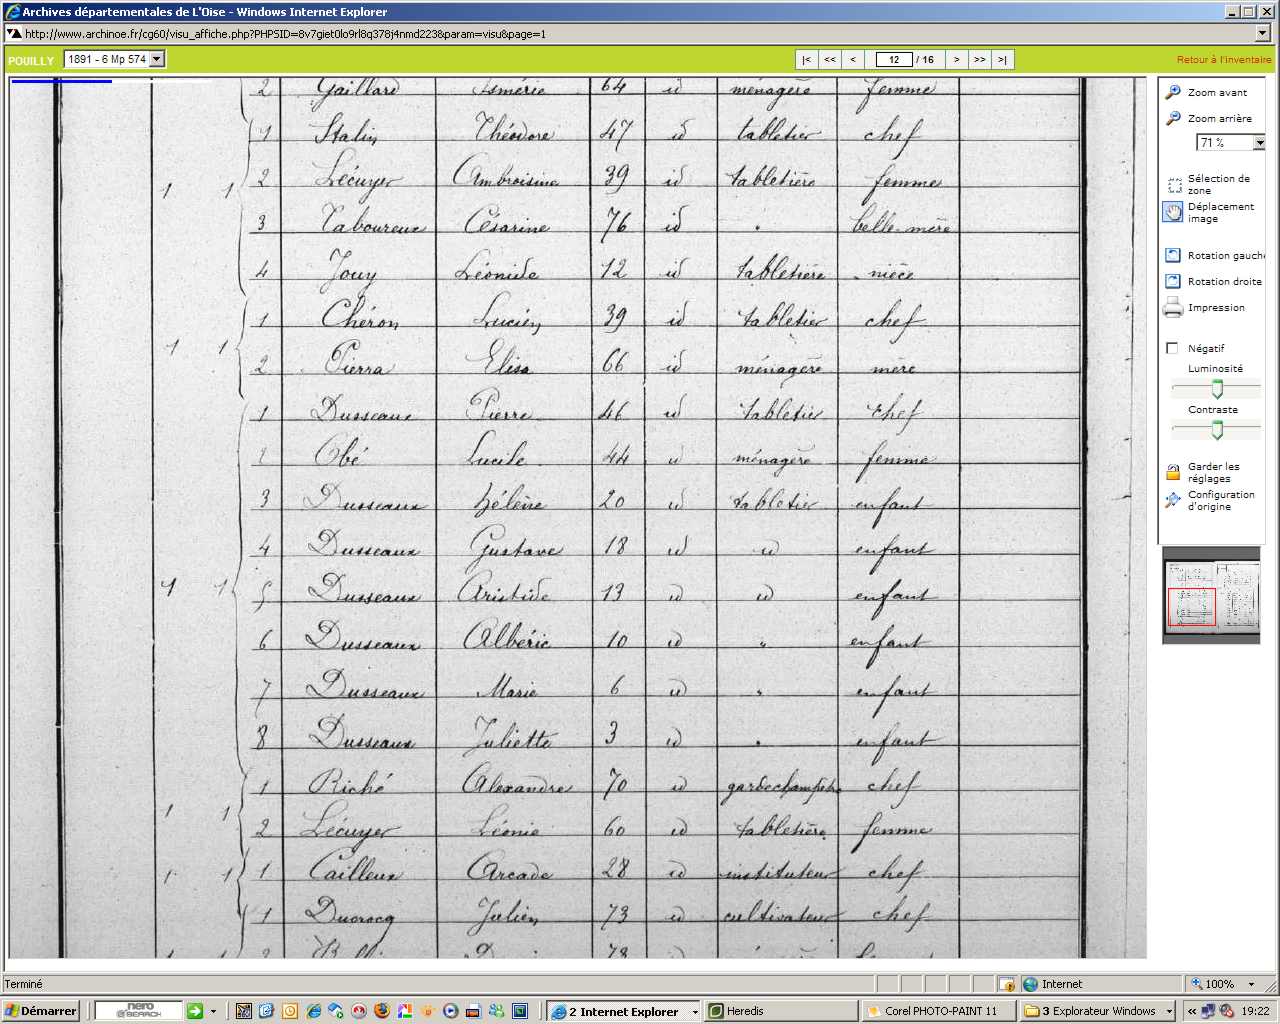 Archives départementales de L'Oise - Windows Internet Explorer
http://www.archinoe.fr/cg60/visu_affiche.php?PHPSID=8v7giet0lo9rl8q378j4nmd223&param=visu&page=1
POUILLY 1891 - 6 Mp 574 |< << < 12 / 16 > >> >| Retour à l'inventaire
2 Gaillard Ismérie 64 id ménagère femme
1 Stalin Théodore 47 id tabletier chef
1 1 2 Lécuyer Ambroisine 39 id tabletière femme
3 Taboureux Césarine 76 id " belle-mère
4 Jouy Léonide 12 id tabletière nièce
1 Chéron Lucien 39 id tabletier chef
1 1 2 Pierra Elisa 66 id ménagère mère
1 Dusseaux Pierre 46 id tabletier chef
2 Obé Lucile 44 id ménagère femme
3 Dusseaux hélène 20 id tabletier enfant
4 Dusseaux Gustave 18 id id enfant
1 1 5 Dusseaux Aristide 13 id id enfant
6 Dusseaux Albéric 10 id " enfant
7 Dusseaux Marie 6 id " enfant
8 Dusseaux Juliette 3 id " enfant
1 Riché Alexandre 70 id garde champêtre chef
1 1 2 Lécuyer Léonie 60 id tabletière femme
1 1 1 Cailleux Arcade 28 id instituteur chef
1 Ducrocq Julien 73 id cultivateur chef
Zoom avant
Zoom arrière
71 %
Sélection de
zone
Déplacement
image
Rotation gauche
Rotation droite
Impression
Négatif
Luminosité
Contraste
Garder les
réglages
Configuration
d'origine
Terminé Internet 100%
Démarrer nero SEARCH 2 Internet Explorer Heredis Corel PHOTO-PAINT 11 3 Explorateur Windows « 19:22